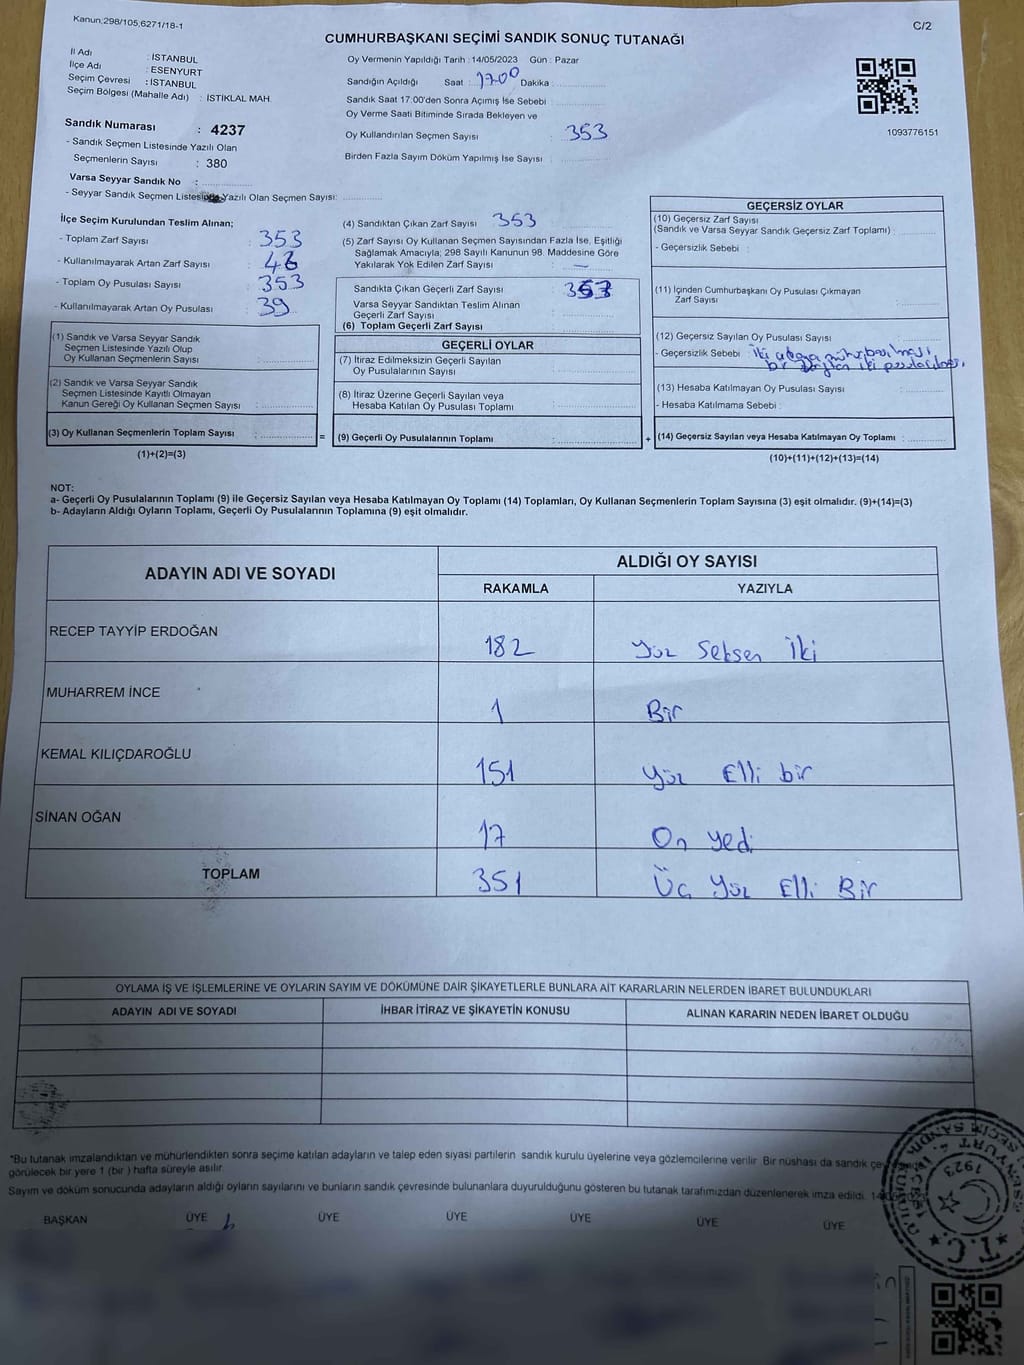 Kanun;298/105,6271/18-1
C/2
CUMHURBAŞKANI SEÇİMİ SANDIK SONUÇ TUTANAĞI
İl Adı : İSTANBUL
İlçe Adı : ESENYURT
Seçim Çevresi : İSTANBUL
Seçim Bölgesi (Mahalle Adı) : İSTİKLAL MAH.
Sandık Numarası : 4237
- Sandık Seçmen Listesinde Yazılı Olan
Seçmenlerin Sayısı : 380
Varsa Seyyar Sandık No :
- Seyyar Sandık Seçmen Listesinde Yazılı Olan Seçmen Sayısı:
Oy Vermenin Yapıldığı Tarih : 14/05/2023 Gün : Pazar
Sandığın Açıldığı Saat : 17.00 Dakika :
Sandık Saat 17:00'den Sonra Açımış İse Sebebi :
Oy Verme Saati Bitiminde Sırada Bekleyen ve
Oy Kullandırılan Seçmen Sayısı : 353
Birden Fazla Sayım Döküm Yapılmış İse Sayısı :
1093776151
İlçe Seçim Kurulundan Teslim Alınan;
- Toplam Zarf Sayısı : 353
- Kullanılmayarak Artan Zarf Sayısı : 46
- Toplam Oy Pusulası Sayısı : 353
- Kullanılmayarak Artan Oy Pusulası : 39
(1) Sandık ve Varsa Seyyar Sandık
Seçmen Listesinde Yazılı Olup
Oy Kullanan Seçmenlerin Sayısı :
(2) Sandık ve Varsa Seyyar Sandık
Seçmen Listesinde Kayıtlı Olmayan
Kanun Gereği Oy Kullanan Seçmen Sayısı :
(3) Oy Kullanan Seçmenlerin Toplam Sayısı :
(1)+(2)=(3)
=
(4) Sandıktan Çıkan Zarf Sayısı : 353
(5) Zarf Sayısı Oy Kullanan Seçmen Sayısından Fazla İse, Eşitliği
Sağlamak Amacıyla; 298 Sayılı Kanunun 98. Maddesine Göre
Yakılarak Yok Edilen Zarf Sayısı : —
Sandıkta Çıkan Geçerli Zarf Sayısı : 353
Varsa Seyyar Sandıktan Teslim Alınan
Geçerli Zarf Sayısı :
(6) Toplam Geçerli Zarf Sayısı :
GEÇERLİ OYLAR
(7) İtiraz Edilmeksizin Geçerli Sayılan
Oy Pusulalarının Sayısı :
(8) İtiraz Üzerine Geçerli Sayılan veya
Hesaba Katılan Oy Pusulası Toplamı :
(9) Geçerli Oy Pusulalarının Toplamı :
+
GEÇERSİZ OYLAR
(10) Geçersiz Zarf Sayısı
(Sandık ve Varsa Seyyar Sandık Geçersiz Zarf Toplamı) :
- Geçersizlik Sebebi :
(11) İçinden Cumhurbaşkanı Oy Pusulası Çıkmayan
Zarf Sayısı :
(12) Geçersiz Sayılan Oy Pusulası Sayısı :
- Geçersizlik Sebebi : İki adaya mühür basılması,
bir zarftan iki pusula çıkması,
(13) Hesaba Katılmayan Oy Pusulası Sayısı :
- Hesaba Katılmama Sebebi :
(14) Geçersiz Sayılan veya Hesaba Katılmayan Oy Toplamı :
(10)+(11)+(12)+(13)=(14)
NOT:
a- Geçerli Oy Pusulalarının Toplamı (9) ile Geçersiz Sayılan veya Hesaba Katılmayan Oy Toplamı (14) Toplamları, Oy Kullanan Seçmenlerin Toplam Sayısına (3) eşit olmalıdır. (9)+(14)=(3)
b- Adayların Aldığı Oyların Toplamı, Geçerli Oy Pusulalarının Toplamına (9) eşit olmalıdır.
ADAYIN ADI VE SOYADI
ALDIĞI OY SAYISI
RAKAMLA YAZIYLA
RECEP TAYYİP ERDOĞAN 182 Yüz Seksen İki
MUHARREM İNCE 1 Bir
KEMAL KILIÇDAROĞLU 151 Yüz Elli bir
SİNAN OĞAN 17 On yedi
TOPLAM 351 Üç Yüz Elli Bir
OYLAMA İŞ VE İŞLEMLERİNE VE OYLARIN SAYIM VE DÖKÜMÜNE DAİR ŞİKAYETLERLE BUNLARA AİT KARARLARIN NELERDEN İBARET BULUNDUKLARI
ADAYIN ADI VE SOYADI İHBAR İTİRAZ VE ŞİKAYETİN KONUSU ALINAN KARARIN NEDEN İBARET OLDUĞU
*Bu tutanak imzalandıktan ve mühürlendikten sonra seçime katılan adayların ve talep eden siyasi partilerin sandık kurulu üyelerine veya gözlemcilerine verilir. Bir nüshası da sandık
görülecek bir yere 1 (bir ) hafta süreyle asılır.
Sayım ve döküm sonucunda adayların aldığı oyların sayılarını ve bunların sandık çevresinde bulunanlara duyurulduğunu gösteren bu tutanak tarafımızdan düzenlenerek imza edildi.
BAŞKAN ÜYE ÜYE ÜYE ÜYE ÜYE ÜYE
T.C.
1923